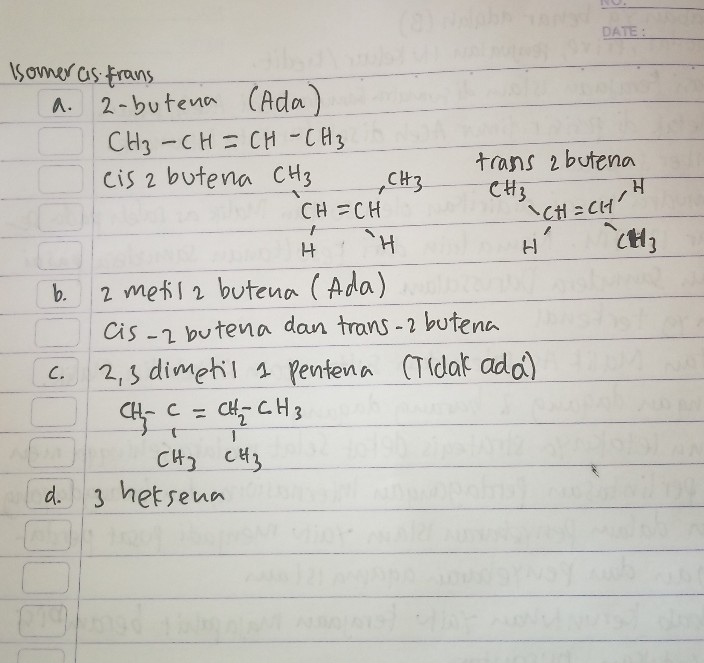 NO.
DATE:
Isomer cis trans
a. 2-butena (Ada)
CH3 – CH = CH – CH3
cis 2 butena CH3 CH3 trans 2 butena
CH = CH CH3 CH = CH H
H H H CH3
b. 2 metil 2 butena (Ada)
cis – 2 butena dan trans – 2 butena
c. 2,3 dimetil 1 pentena (Tidak ada)
CH3 – C = CH2 – CH3
CH3 CH3
d. 3 heksena